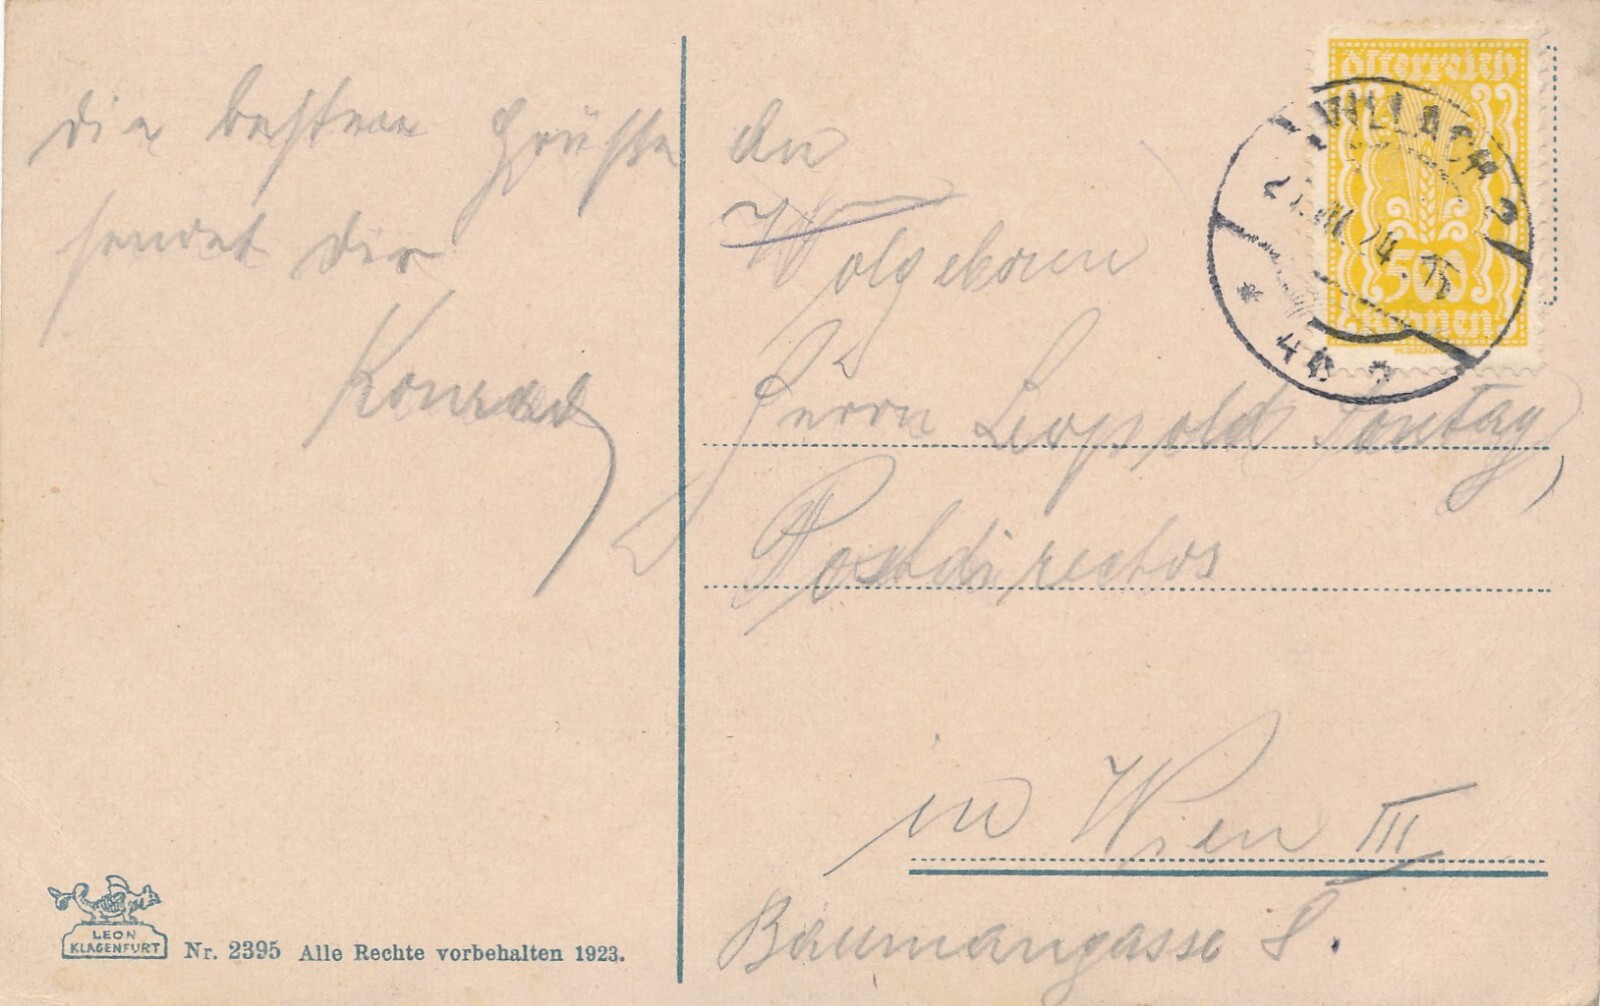 die besten Grüße
sendet dir
Konrad
An
Wolgeboren
Herrn Leopold Sontag,
Postdirector
in Wien III
Baumangasse 8.
Österreich
500
Kronen
VILLACH 2
VIII. 24
* 4b
LEON
KLAGENFURT
Nr. 2395 Alle Rechte vorbehalten 1923.